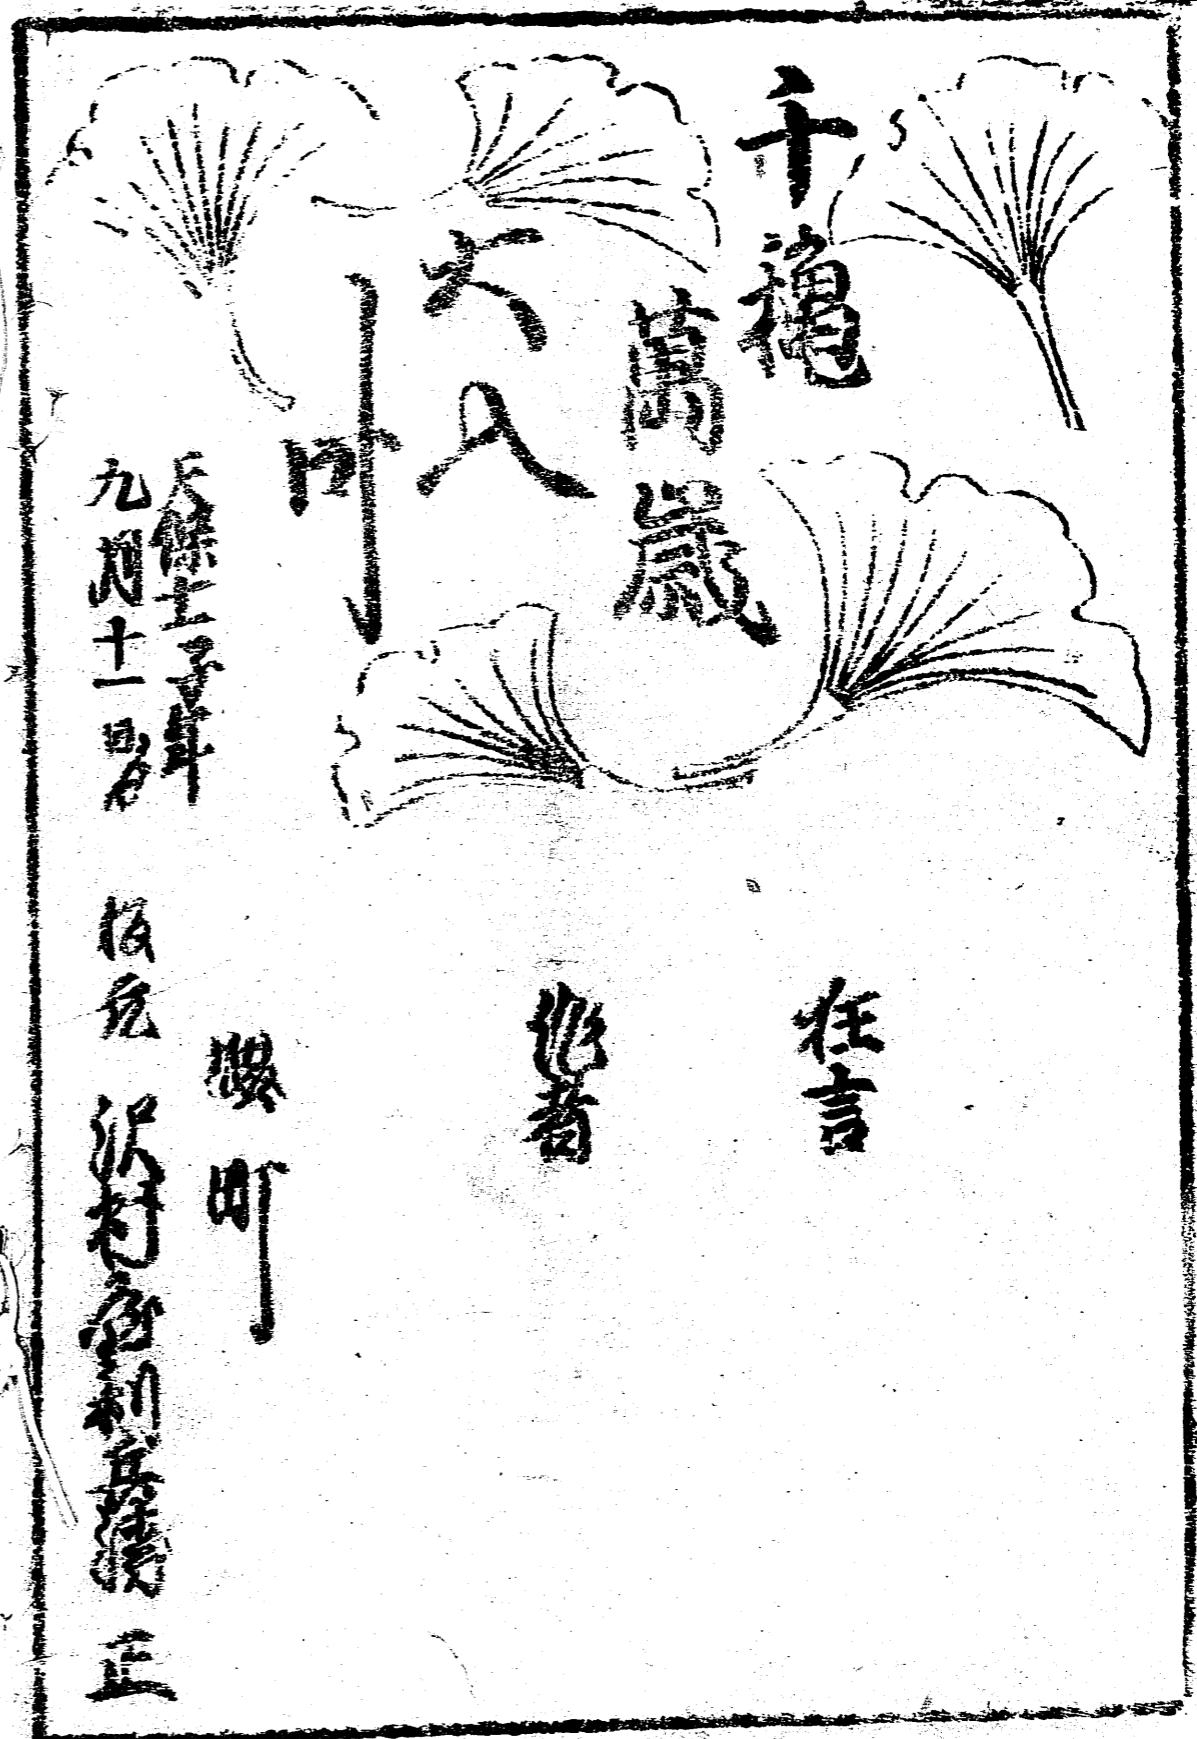 千穐
萬歳
大入
叶
狂言
作者
天保十一子年
九月十一日ゟ
町
板元 沢村屋利兵衛 正